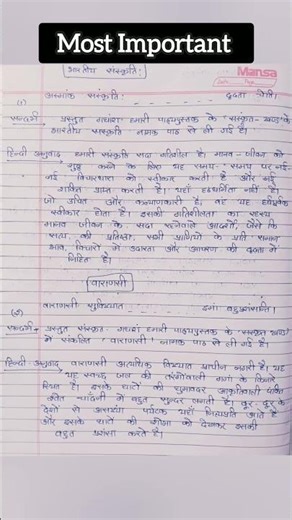 Most Important
Mansa
भारतीय संस्कृति:
(1) अस्माकं संस्कृति: दृढता चेति।
सन्दर्भ प्रस्तुत गद्यांश हमारी पाठ्यपुस्तक के 'संस्कृत-खण्ड' के
भारतीय संस्कृति नामक पाठ से ली गई है।
हिन्दी अनुवाद हमारी संस्कृति सदा गतिशील है। मानव-जीवन को
शुद्ध करने के लिए यह समय-समय पर नई-
नई विचारधारा को स्वीकार करती है और नई
शक्ति प्राप्त करती है। यहाँ नहीं है।
जो उचित और कल्याणकारी है, वह यहाँ
स्वीकार होता है। इसकी गतिशीलता का रहस्य
मानव जीवन के सदा रहनेवाले आदर्शों, जैसे कि
सत्य की प्रतिष्ठा, सभी प्राणियों के प्रति समान
भाव, विचारों में उदारता और आचरण की दृढता में
निहित है।
वाराणसी
वाराणसी सुविख्याता
सन्दर्भ प्रस्तुत संस्कृत-गद्यांश हमारी पाठ्यपुस्तक के 'संस्कृत खण्ड'
में संकलित 'वाराणसी' नामक पाठ से ली गई है।
हिन्दी अनुवाद वाराणसी अत्यधिक विख्यात प्राचीन नगरी है। यह
यह स्वच्छ जल की तरंगोंवाली गंगा के किनारे
स्थित है। इसके घाटों की घुमावदार आकृतिवाली पंक्ति
श्वेत चाँदनी में बहुत सुन्दर लगती है। दूर-दूर के
देशों से असंख्य पर्यटक यहाँ नित्यप्रति आते हैं
और इसके घाटों की शोभा को देखकर इसकी
बहुत प्रशंसा करते हैं।